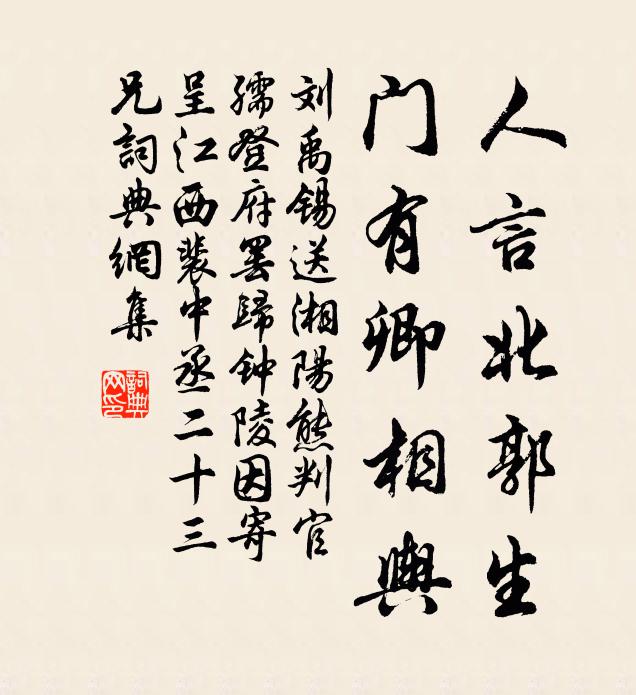 人言北郭生
门有卿相輿
刘禹锡送湘陽熊判官
孺登府罢歸钟陵因寄
呈江西裴中丞二十三
兄詞典網集
詞典网印